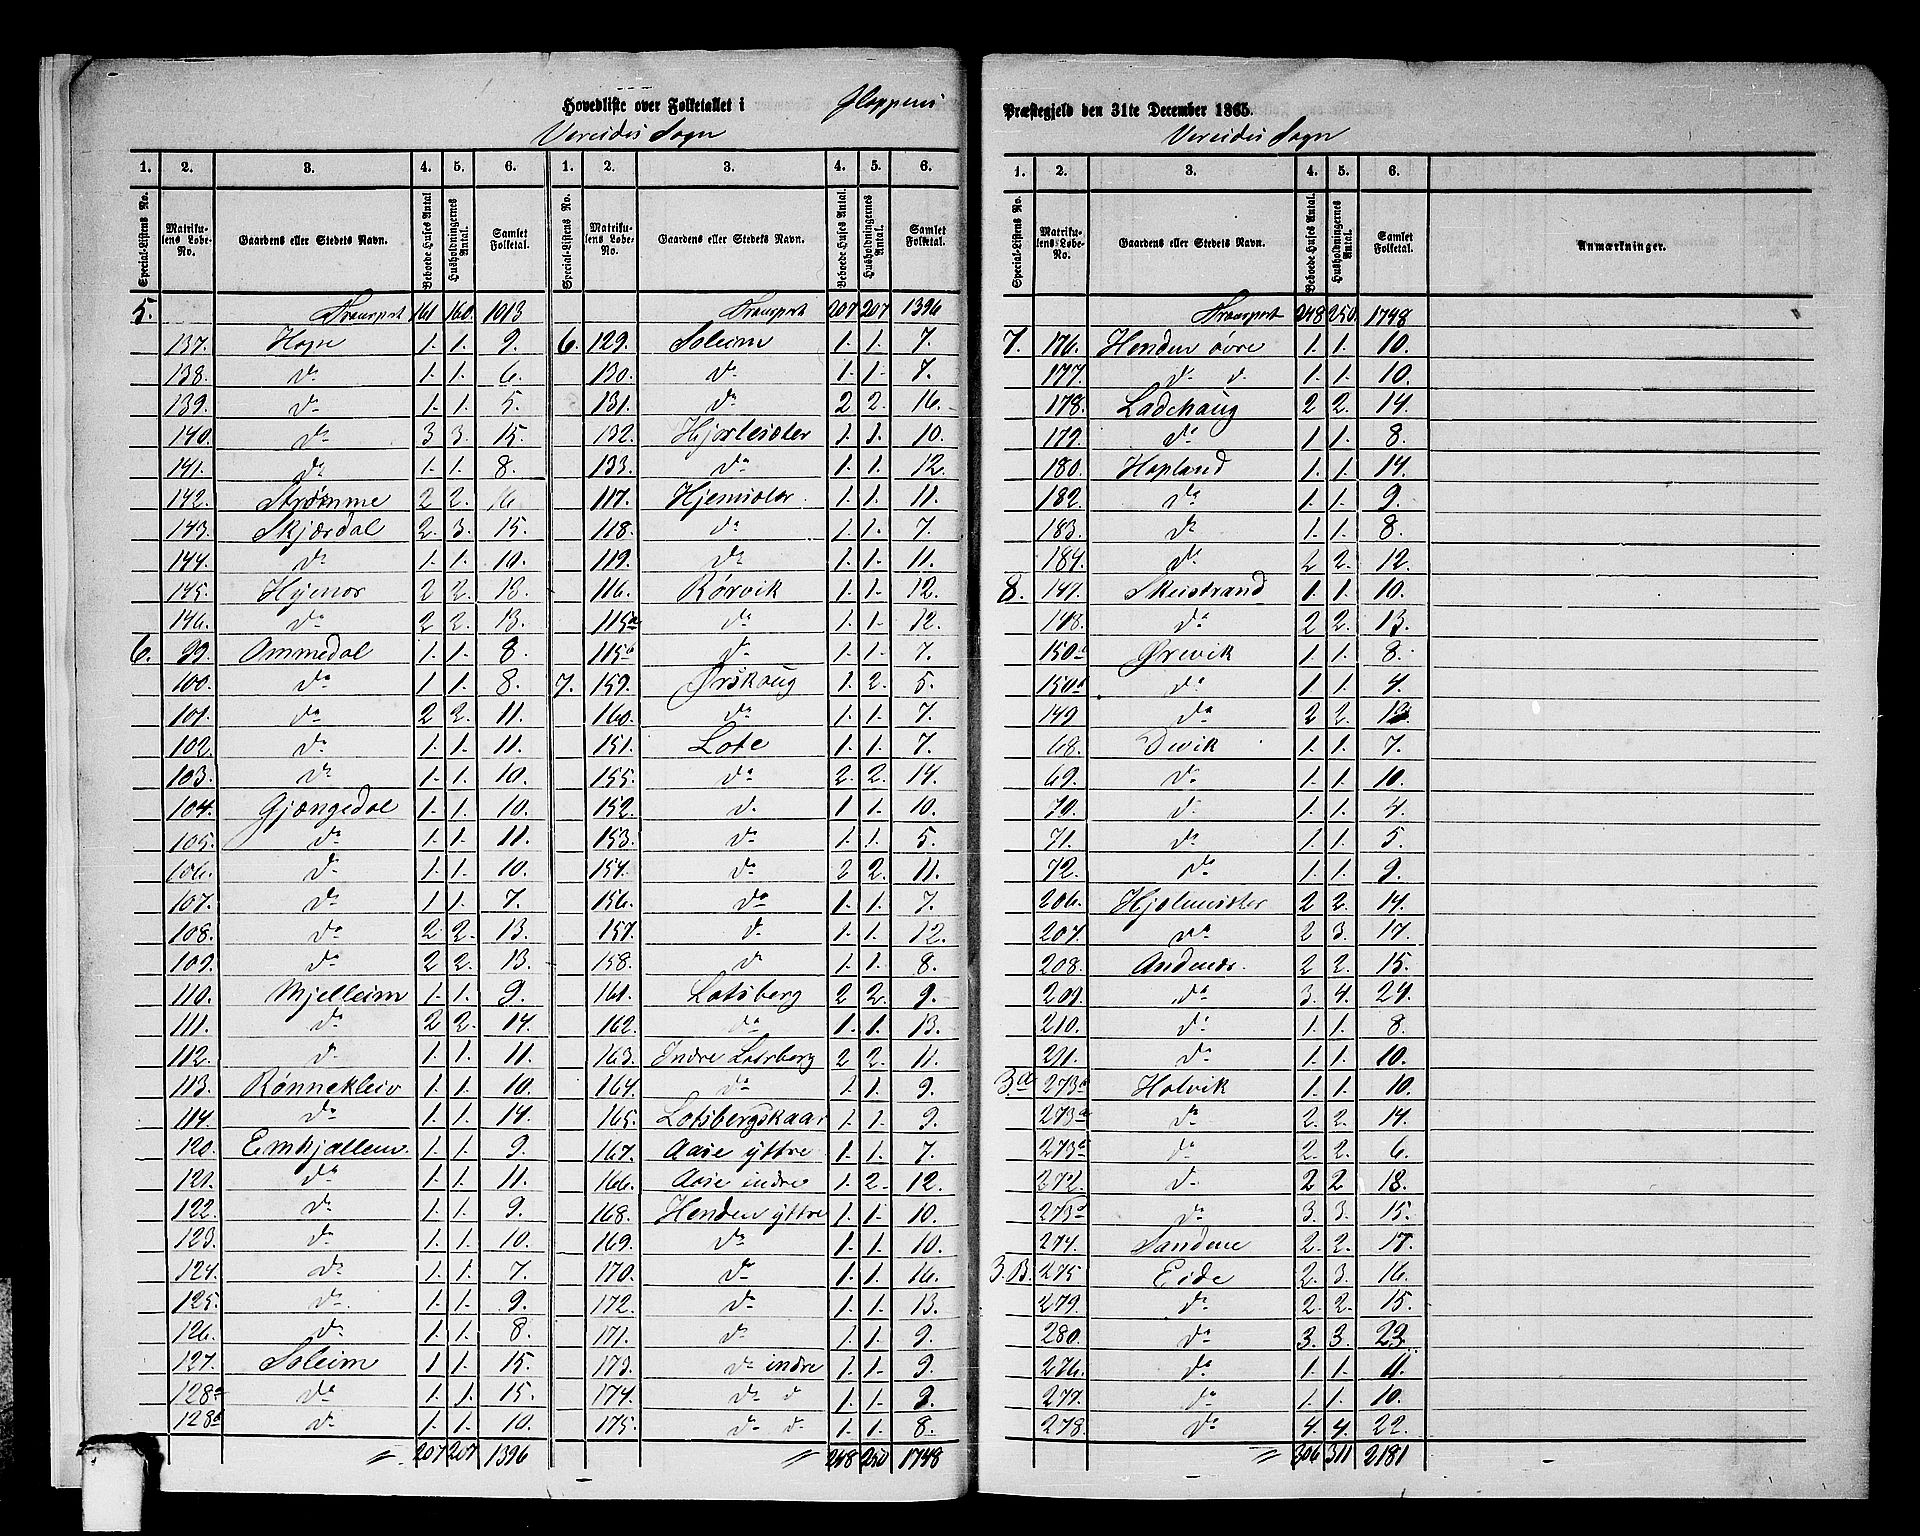 Hovedliste over Folketallet i Gloppens
Vereides Sogn
1. 2. 3. 4. 5. 6. 1. 2. 3. 4. 5. 6.
Special-Listens No. Matrikulens Løbe-No. Gaardens eller Stedets Navn. Beboede Huses Antal. Husholdningernes Antal. Samlet Folketal. Special-Listens No. Matrikulens Løbe-No. Gaardens eller Stedets Navn. Beboede Huses Antal. Husholdningernes Antal. Samlet Folketal.
5. Transport 161 160. 1013 Transport 207 207 1396
137. Hope 1. 1. 9. 6. 129. Soleim 1. 1. 7.
138. do 1. 1. 6. 130. do 1. 1. 7.
139. do 1. 1. 5. 131. do 2 2. 16.
140. do 3 3. 15. 132. Hjorteister 1. 1. 10.
141. do 1. 1. 8. 133. do 1. 1. 12.
142. Strømme 2 2. 16. 117. Hjemister 1. 1. 11.
143. Skjærdal 2. 3. 15. 118. do 1. 1. 7.
144. do 1. 1. 10. 119. do 1. 1. 11.
145. Hyenor 2 2. 13. 116. Rørvik 1. 1. 12.
146. do 2 2. 13. 115a do 1. 1. 12.
6. 99. Ommedal 1. 1. 8. 115b do 1. 1. 7.
100. do 1. 1. 8. 7. 159. Ørskaug 1. 2. 5.
101. do 2 2. 11. 160. do 1. 1. 7.
102. do 1. 1. 11. 151. Lote 1. 1. 7.
103. do 1. 1. 10. 155. do 2. 2. 14.
104. Gjengedal 1. 1. 10. 152. do 1 1. 10.
105. do 1. 1. 11. 153. do 1. 1. 5.
106. do 1. 1. 10. 154. do 2 2. 11.
107. do 1. 1. 7. 156. do 1. 1. 7.
108. do 2. 2. 13. 157. do 1. 1. 12.
109. do 2 2. 13. 158. do 1. 1. 8.
110. Mjelleim 1. 1. 9. 161. Lotsberg 2 2. 9.
111. do 2 2. 14. 162. do 1. 1. 13.
112. do 1. 1. 11. 163. Indre Lotsberg 2 2. 11.
113. Rønnekleiv 1. 1. 10. 164. do 1. 1. 9.
114. do 1. 1. 14. 165. Lotsbergskaar 1. 1. 9.
120. Emhjellen 1. 1. 9. 167. Aase yttre 1. 1. 7.
121. do 1. 1. 11. 166. Aase indre 1. 2. 12.
122. do 1. 1. 9. 168. Henden yttre 1. 1. 10.
123. do 1. 1. 10. 169. do 1. 1. 10.
124. do 1. 1. 7. 170. do 1. 1. 16.
125. do 1. 1. 9. 172. do 1. 1. 13.
126. do 1. 1. 8. 171. do 1. 1. 9.
127. Soleim 1 1. 15. 173. do indre 1. 1. 9.
128a do 1. 1. 15. 174. do d 1. 1. 9.
128b do 1. 1. 10. 175. do d. 1. 1. 8.
207 207 1396 248 250 1748
Præstegjeld den 31te December 1865.
Vereides Sogn
1. 2. 3. 4. 5. 6.
Special-Listens No. Matrikulens Løbe-No. Gaardens eller Stedets Navn. Beboede Huses Antal. Husholdningernes Antal. Samlet Folketal. Anmærkninger.
Transport 248 250. 1748
7. 176. Henden øvre 1. 1. 10.
177. do d. 1. 1. 10.
178. Ladehaug 2 2. 14.
179. do 1 1. 8.
180. Hopland 1. 1. 14.
182. do 1. 1. 9.
183. do 1. 1. 8.
184. do 2 2. 12.
8. 147. Skeistrand 1. 1. 10.
148. do 2 2. 13.
150b Ørevik 1. 1. 8.
150a do 1. 1. 4.
149 do 2 2. 13.
68. Devik 1. 1. 7.
69. do 1. 1. 10.
70. do 1. 1. 4.
71. do 1. 1. 5.
72. do 1. 1. 9.
206. Hjelmeister 2 2. 14.
207. do 2 3. 17.
208. Andenes. 2 2. 15.
209. do 3. 4. 24.
210. do 1. 1. 8.
211. do 1. 1. 10.
3a. 273a Holvik 1. 1. 10.
273a do 2. 2. 14.
273a do 2. 2. 6.
272. do 2 2 18.
273a do 3. 3. 15.
274. Sandene 2. 2. 17.
3.B. 275 Eide 2. 3. 16.
279. do 2. 2. 15.
280. do 3. 3. 23.
276. do 1. 1. 11.
277. do 1. 1. 10.
278. do 4. 4. 22.
306 311 2181